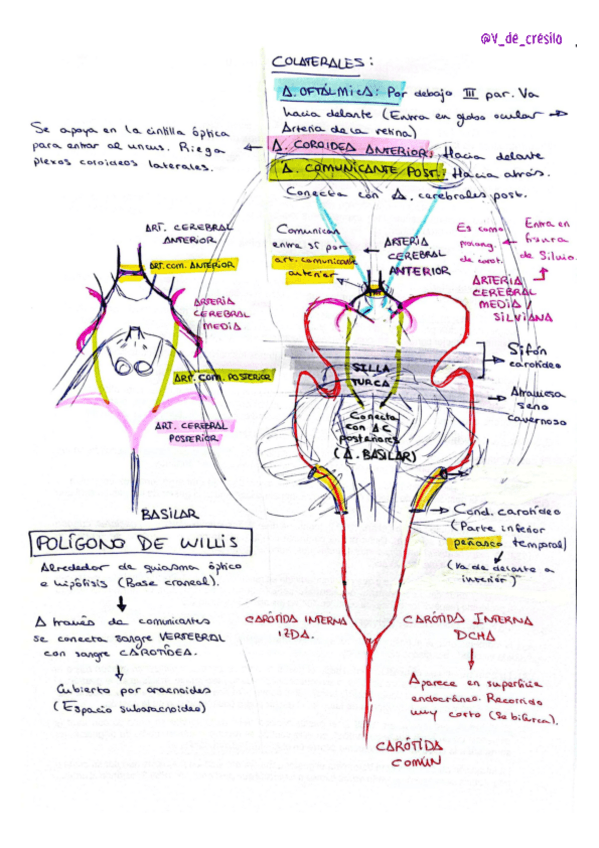 @V_de_cresilo
COLATERALES:
A. OFTÁLMICA: Por debajo III par. Va
hacia delante (Entra en globo ocular →
Arteria de la retina)
A. COROIDEA ANTERIOR: Hacia delante
Se apoya en la cintilla óptica
para entrar al uncus. Riega
plexos coroideos laterales.
A. COMUNICANTE POST.: Hacia atrás.
Conecta con A. cerebrales post.
ART. CEREBRAL
ANTERIOR
ART. COM. ANTERIOR
ARTERIA
CEREBRAL
MEDIA
ART. COM. POSTERIOR
ART. CEREBRAL
POSTERIOR
BASILAR
Comunican
entre sí por
art. comunicante
anterior
ARTERIA
CEREBRAL
ANTERIOR
Es como
prolong.
de carot.
Entra en
fisura
de Silvio.
ARTERIA
CEREBRAL
MEDIA /
SILVIANA
Sifón
carotídeo
SILLA
TURCA
Atraviesa
seno
cavernoso
Conecta
con AC
posteriores
(A. BASILAR)
Cond. carotídeo
(Parte inferior
peñasco temporal)
(Va de delante a
interior)
POLÍGONO DE WILLIS
Alrededor de quiasma óptico
e hipófisis (Base craneal).
A través de comunicantes
se conecta sangre VERTEBRAL
con sangre CAROTÍDEA.
Cubierto por aracnoides
(Espacio subaracnoideo)
CARÓTIDA INTERNA
IZDA.
CARÓTIDA INTERNA
DCHA
Aparece en superficie
endocráneo. Recorrido
muy corto (Se bifurca).
CARÓTIDA
COMÚN